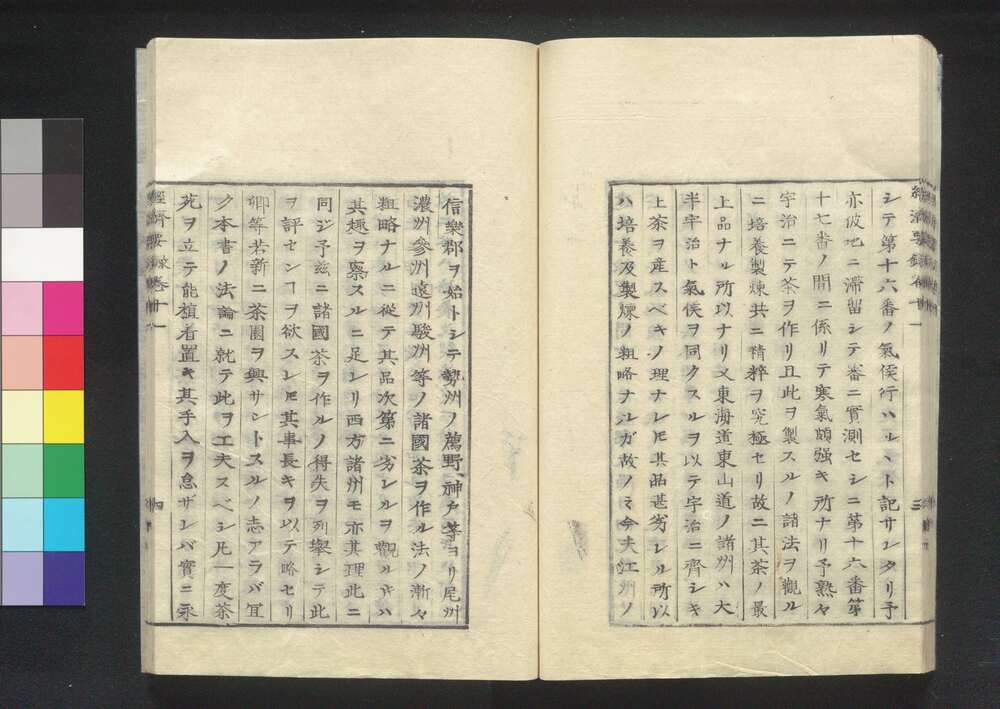 シテ第十六番ノ氣候行ハルヽト記サレタリ予
亦彼地ニ滞留シテ審ニ實測セシニ第十六番第
十七番ノ間ニ係リテ寒氣頗強キ所ナリ予熟々
宇治ニテ茶ヲ作リ且此ヲ製スルノ諸法ヲ觀ル
ニ培養製煉共ニ精粹ヲ究極セリ故ニ其茶ノ最
上品ナル所以ナリ又東海道東山道ノ諸州ハ大
半宇治ト氣侯ヲ同クスルヲ以テ宇治ニ齊シキ
上茶ヲ産スベキノ理ナレ𪜈其品甚劣レル所以
ハ培養及製煉ノ粗略ナルガ故ノミ今夫江州ノ
三
信樂郡ヲ始トシテ勢州ノ薦野、神戸等ヨリ尾州
濃州參州遠州駿州等ノ諸國茶ヲ作ル法ノ漸々
粗略ナルニ從テ其品次第ニ劣レルヲ觀ル寸ハ
其趣ヲ察スルニ足レリ西方諸州モ亦其理此ニ
同ジ予茲ニ諸國茶ヲ作ルノ得失ヲ列擧シテ此
ヲ評センヿヲ欲スレ𪜈其事長キヲ以テ略セリ
卿等若新ニ茶園ヲ興サント スルノ志アラバ宜
ク本書ノ法論ニ就テ此ヲ工夫スベシ凡一度茶
苑ヲ立テ能植者置キ其手入ヲ怠ザレバ實ニ永
經濟要錄卷十一
四